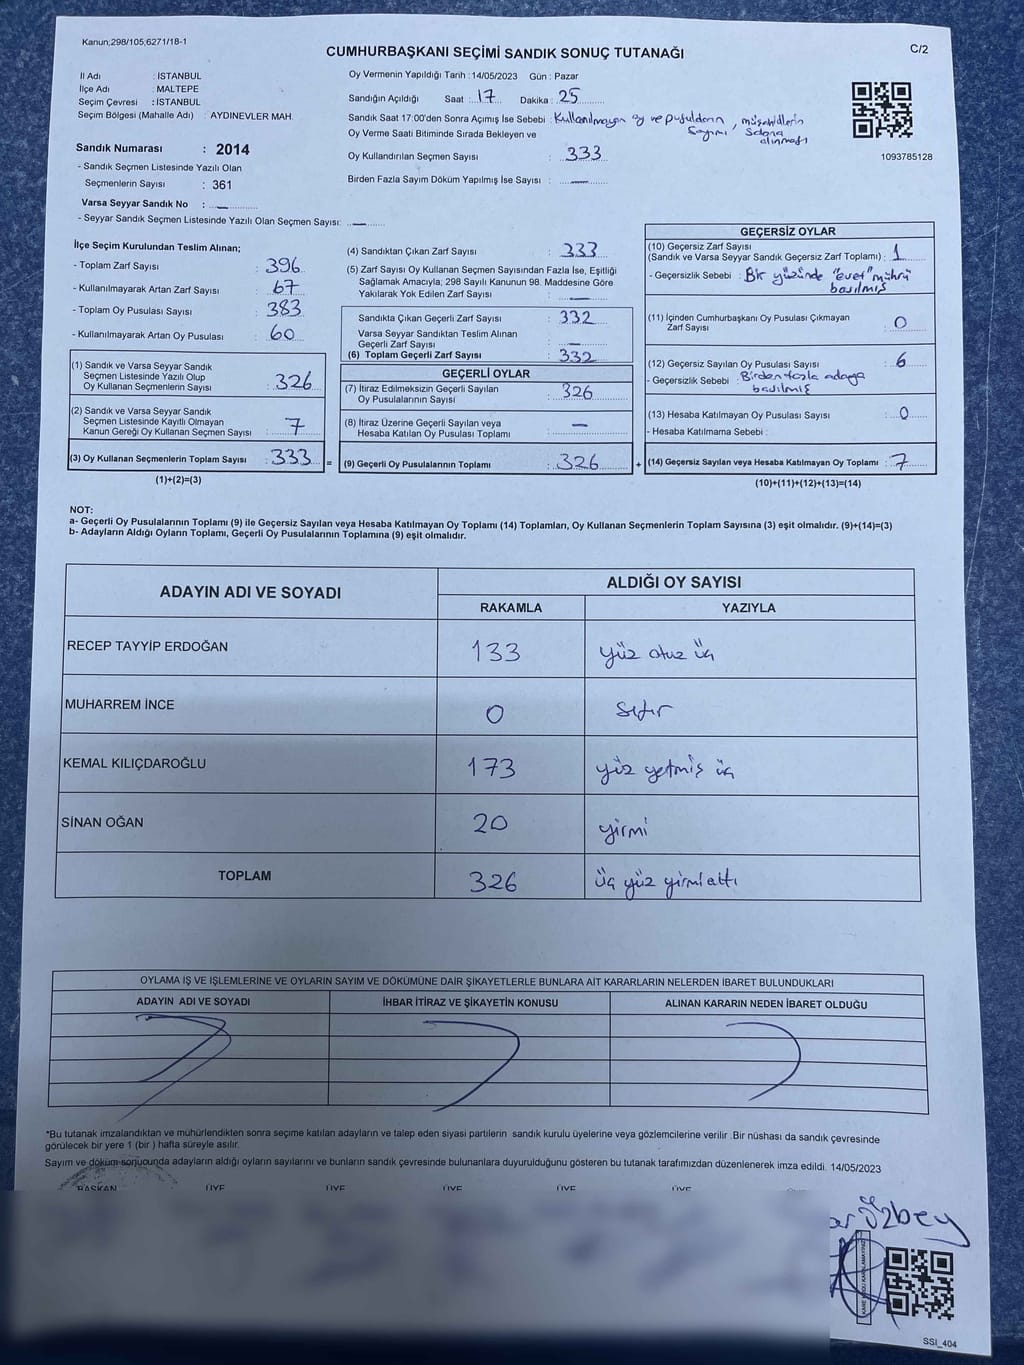 Kanun;298/105;6271/18-1
CUMHURBAŞKANI SEÇİMİ SANDIK SONUÇ TUTANAĞI
C/2
İl Adı : İSTANBUL
İlçe Adı : MALTEPE
Seçim Çevresi : İSTANBUL
Seçim Bölgesi (Mahalle Adı) : AYDINEVLER MAH.
Sandık Numarası : 2014
- Sandık Seçmen Listesinde Yazılı Olan
Seçmenlerin Sayısı : 361
Varsa Seyyar Sandık No : —
- Seyyar Sandık Seçmen Listesinde Yazılı Olan Seçmen Sayısı: —
Oy Vermenin Yapıldığı Tarih : 14/05/2023 Gün : Pazar
Sandığın Açıldığı Saat : 17 Dakika : 25
Sandık Saat 17:00'den Sonra Açımış İse Sebebi : Kullanılmayan oy ve pusuların, müşahidlerin
Sayımı, salona
alınması
Oy Verme Saati Bitiminde Sırada Bekleyen ve
Oy Kullandırılan Seçmen Sayısı : 333
Birden Fazla Sayım Döküm Yapılmış İse Sayısı : —
1093785128
İlçe Seçim Kurulundan Teslim Alınan;
- Toplam Zarf Sayısı : 396
- Kullanılmayarak Artan Zarf Sayısı : 67
- Toplam Oy Pusulası Sayısı : 383
- Kullanılmayarak Artan Oy Pusulası : 60
(1) Sandık ve Varsa Seyyar Sandık
Seçmen Listesinde Yazılı Olup
Oy Kullanan Seçmenlerin Sayısı : 326
(2) Sandık ve Varsa Seyyar Sandık
Seçmen Listesinde Kayıtlı Olmayan
Kanun Gereği Oy Kullanan Seçmen Sayısı : 7
(3) Oy Kullanan Seçmenlerin Toplam Sayısı : 333 =
(1)+(2)=(3)
(4) Sandıktan Çıkan Zarf Sayısı : 333
(5) Zarf Sayısı Oy Kullanan Seçmen Sayısından Fazla İse, Eşitliği
Sağlamak Amacıyla; 298 Sayılı Kanunun 98. Maddesine Göre
Yakılarak Yok Edilen Zarf Sayısı : —
Sandıkta Çıkan Geçerli Zarf Sayısı : 332
Varsa Seyyar Sandıktan Teslim Alınan
Geçerli Zarf Sayısı : —
(6) Toplam Geçerli Zarf Sayısı : 332
GEÇERLİ OYLAR
(7) İtiraz Edilmeksizin Geçerli Sayılan
Oy Pusulalarının Sayısı : 326
(8) İtiraz Üzerine Geçerli Sayılan veya
Hesaba Katılan Oy Pusulası Toplamı : —
(9) Geçerli Oy Pusulalarının Toplamı : 326 +
GEÇERSİZ OYLAR
(10) Geçersiz Zarf Sayısı
(Sandık ve Varsa Seyyar Sandık Geçersiz Zarf Toplamı) : 1
- Geçersizlik Sebebi : Bir yüzünde "evet" mührü
basılmış
(11) İçinden Cumhurbaşkanı Oy Pusulası Çıkmayan
Zarf Sayısı : 0
(12) Geçersiz Sayılan Oy Pusulası Sayısı : 6
- Geçersizlik Sebebi : Birden fazla adaya
basılmış
(13) Hesaba Katılmayan Oy Pusulası Sayısı : 0
- Hesaba Katılmama Sebebi :
(14) Geçersiz Sayılan veya Hesaba Katılmayan Oy Toplamı : 7
(10)+(11)+(12)+(13)=(14)
NOT:
a- Geçerli Oy Pusulalarının Toplamı (9) ile Geçersiz Sayılan veya Hesaba Katılmayan Oy Toplamı (14) Toplamları, Oy Kullanan Seçmenlerin Toplam Sayısına (3) eşit olmalıdır. (9)+(14)=(3)
b- Adayların Aldığı Oyların Toplamı, Geçerli Oy Pusulalarının Toplamına (9) eşit olmalıdır.
ADAYIN ADI VE SOYADI ALDIĞI OY SAYISI
RAKAMLA YAZIYLA
RECEP TAYYİP ERDOĞAN 133 yüz otuz üç
MUHARREM İNCE 0 sıfır
KEMAL KILIÇDAROĞLU 173 yüz yetmiş üç
SİNAN OĞAN 20 yirmi
TOPLAM 326 üç yüz yirmi altı
OYLAMA İŞ VE İŞLEMLERİNE VE OYLARIN SAYIM VE DÖKÜMÜNE DAİR ŞİKAYETLERLE BUNLARA AİT KARARLARIN NELERDEN İBARET BULUNDUKLARI
ADAYIN ADI VE SOYADI İHBAR İTİRAZ VE ŞİKAYETİN KONUSU ALINAN KARARIN NEDEN İBARET OLDUĞU
*Bu tutanak imzalandıktan ve mühürlendikten sonra seçime katılan adayların ve talep eden siyasi partilerin sandık kurulu üyelerine veya gözlemcilerine verilir .Bir nüshası da sandık çevresinde
görülecek bir yere 1 (bir ) hafta süreyle asılır.
Sayım ve döküm sonucunda adayların aldığı oyların sayılarını ve bunların sandık çevresinde bulunanlara duyurulduğunu gösteren bu tutanak tarafımızdan düzenlenerek imza edildi. 14/05/2023
BAŞKAN ÜYE ÜYE ÜYE ÜYE ÜYE
Özbey
SSI_404